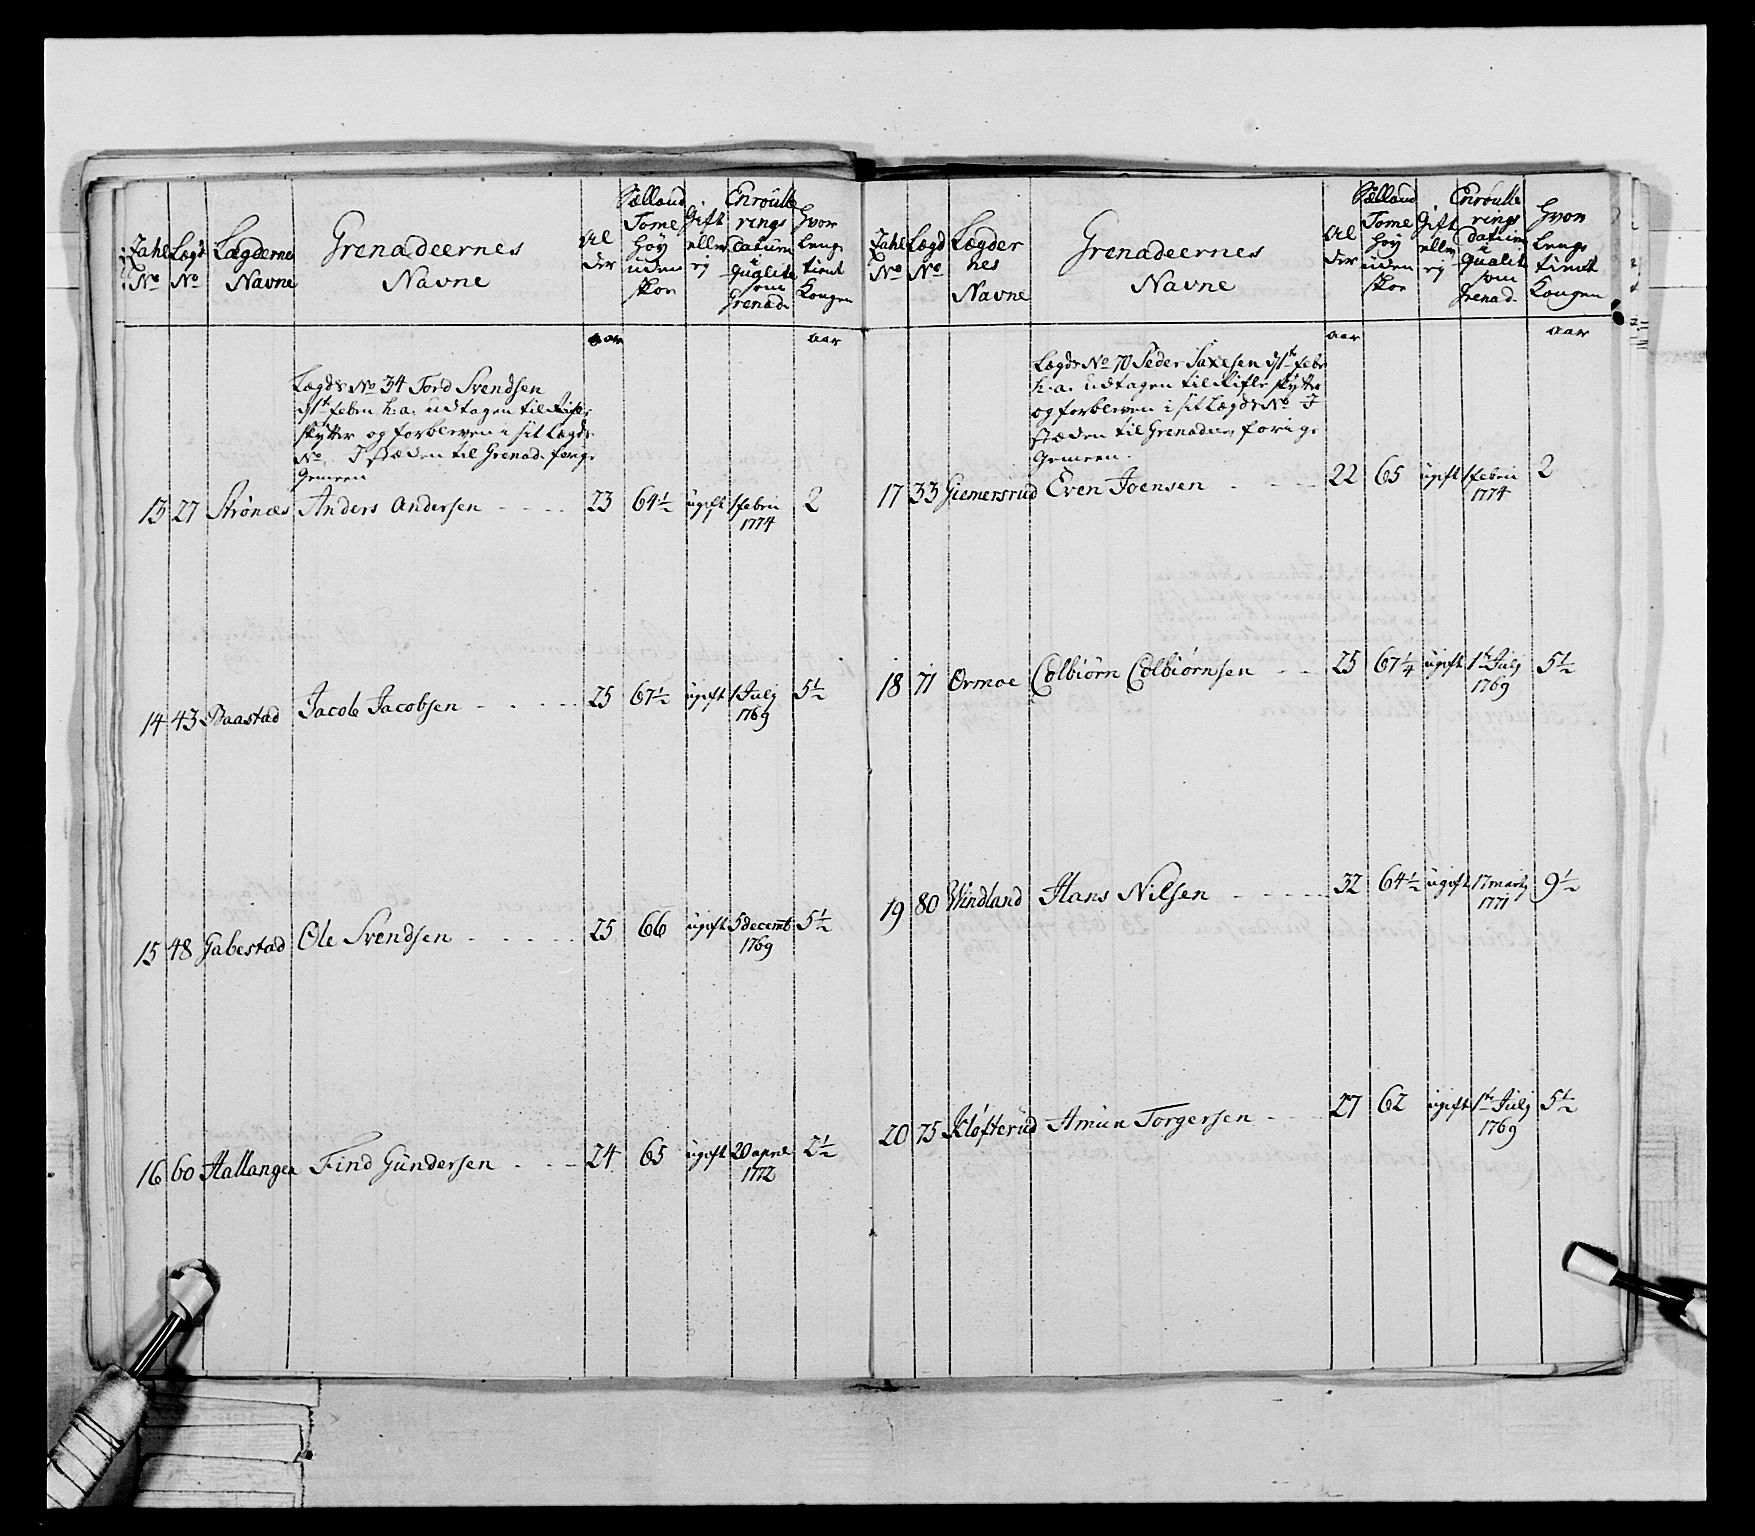 Zahl No
Lægd No
Lægdernes Navne
Grenadeernes Navne
Al der
Sælland Tome høy uden skoe
Gift eller ej
Enroulle rings datum i qualite som Grenad.
Hvor Lenge tient Kongen
aar
aar
Lægds No 34 Tord Svendsen
d 1te febru h: a. udtagen til Rifle
skytter og forbleven i sit Lægds
No. I stæden til Grenad. forige
Gemeen
13 27 Strønæs Anders Andersen 23 64½ ugift 1 febru 1774 2
14 43 Baastad Jacob Jacobsen 25 67½ ugift 1 July 1769 5½
15 48 Gabestad Ole Svendsen 25 66 ugift 5 decemb 1769 5½
16 60 Hallangen Find Gundersen 24 65 ugift 20 april 1772 2½
Zahl No
Lægd No
Lægder nes Navne
Grenadeernes Navne
Al der
Sælland Tome høy uden skoe
Gift eller ej
Enroulle rings datum i qualite som Grenad.
Hvor Lenge tient Kongen
aar
aar
Lægds No 70 Peder Saxesen d 1te febr
h: a. udtagen til Rifle skytter
og forbleven i sit Lægds No I
stæden til Grenadeer, forige
Gemeen.
17 33 Giemersrud Even Joensen 22 65 ugift 1 febru 1774 2
18 71 Ormoe Colbiørn Colbiørnsen 25 67¼ ugift 1te July 1769 5½
19 80 Windland Hans Nilsen 32 64½ ugift 17 marty 1771 9½
20 75 Kløfterud Amun Torgersen 27 62 ugift 1te July 1769 5½